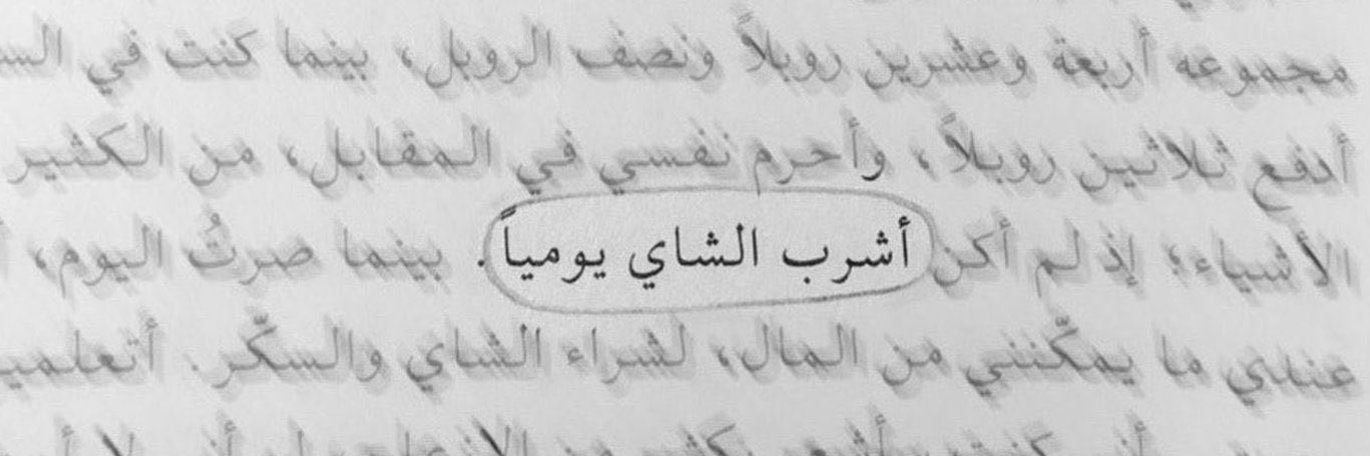 مجموعه أربعة وعشرين روبلاً ونصف الروبل، بينما كنت في
أدفع ثلاثين روبلاً، وأحرم نفسي في المقابل، من الكثير
الأشياء؛ إذ لم أكن أشرب الشاي يومياً. بينما صرتُ اليوم،
عندي ما يمكّنني من المال، لشراء الشاي والسكّر.